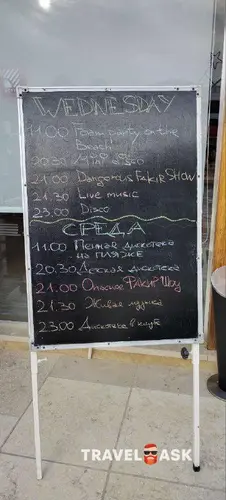 WEDNESDAY
11.00 Foam party on the
Beach
20.30 Mini disco
21.00 Dangerous Fakir SHOW
21.30 Live music
23.00 Disco
СРЕДА
11.00 Пенная дискотека
на ПЛЯЖЕ
20.30 Детская дискотека
21.00 Опасное Факир Шоу
21.30 Живая музыка
23.00 Дискотека в клубе
TRAVEL ASK